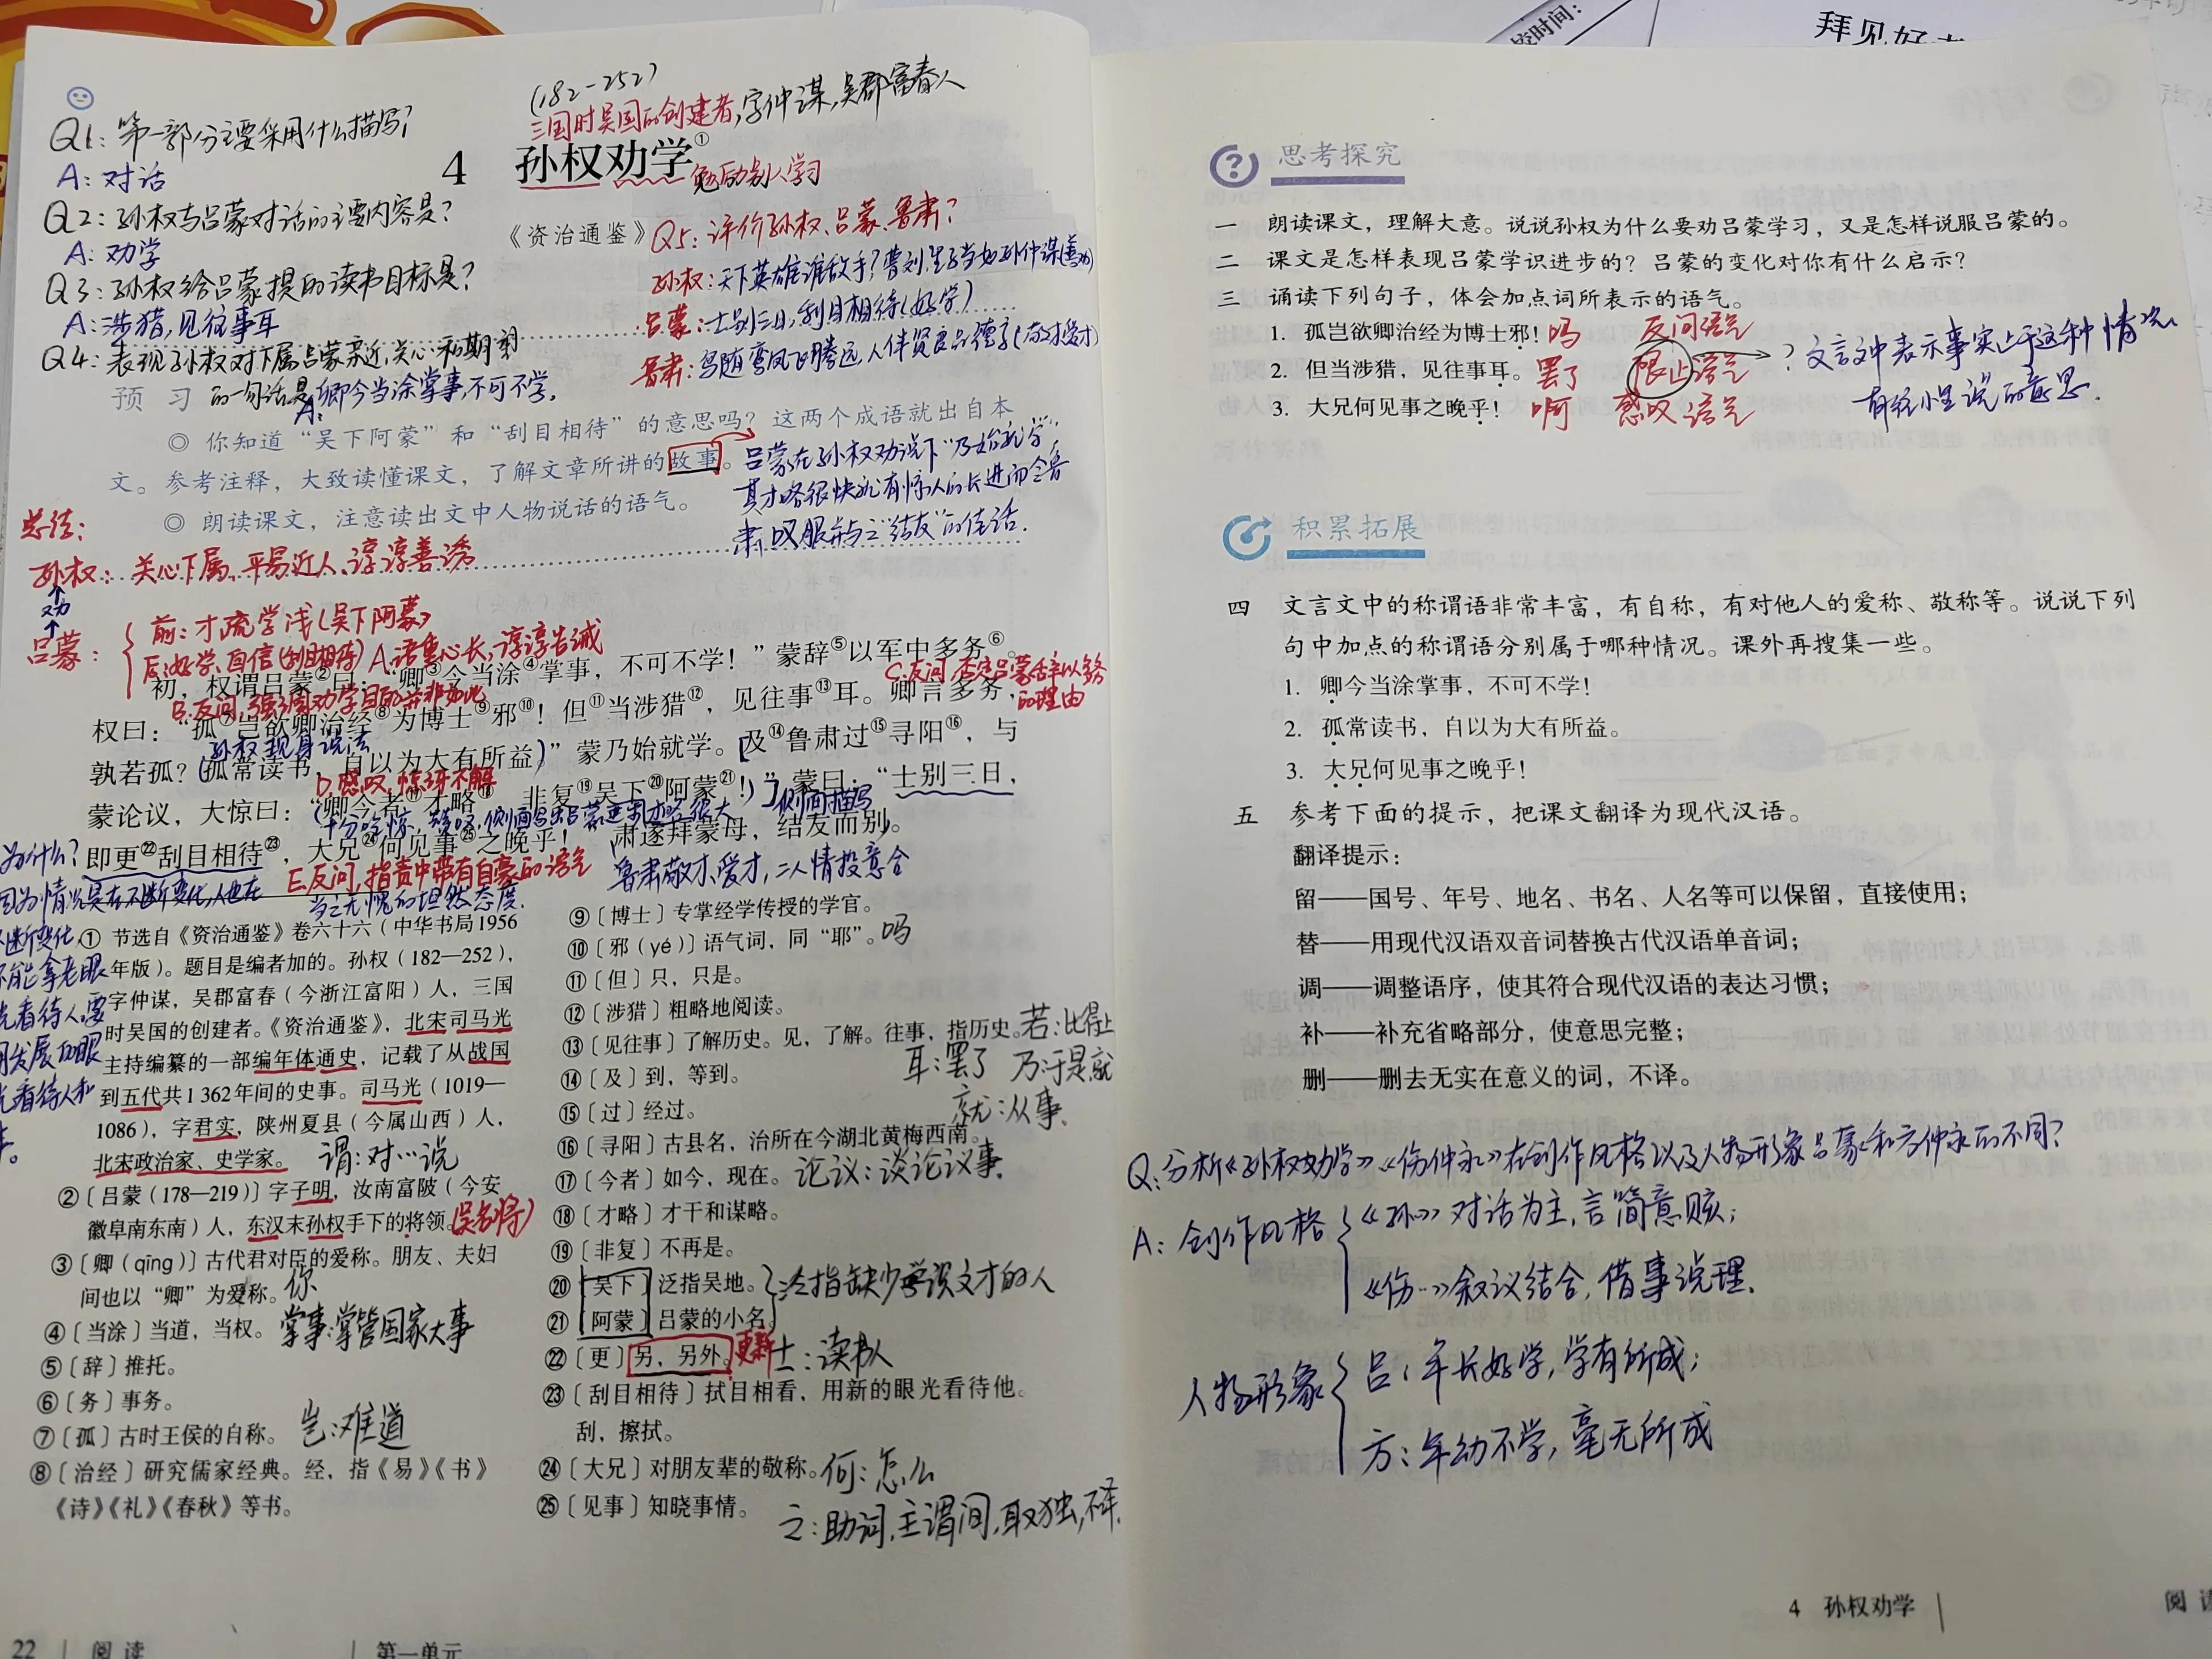 校时间：
拜见好
(182-252)
三国时吴国的创建者,字仲谋,吴郡富春人
4 孙权劝学①
勉励别人学习
《资治通鉴》
Q1：第一部分主要采用什么描写？
A：对话
Q2：孙权与吕蒙对话的主要内容是？
A：劝学
Q3：孙权给吕蒙提的读书目标是？
A：涉猎,见往事耳
Q4：表现孙权对下属吕蒙亲近,关心和期望
的一句话是
A：卿今当涂掌事,不可不学。
Q5：评价孙权、吕蒙、鲁肃？
孙权：天下英雄谁敌手？曹刘,生子当如孙仲谋(善劝)
吕蒙：士别三日,刮目相待(好学)
鲁肃：鸟随鸾凤飞腾远,人伴贤良品德高(敬才爱才)
预 习
◎ 你知道“吴下阿蒙”和“刮目相待”的意思吗？这两个成语就出自本
文。参考注释，大致读懂课文，了解文章所讲的故事。
◎ 朗读课文，注意读出文中人物说话的语气。
吕蒙在孙权劝说下“乃始就学”,
其才略很快就有惊人的长进而令鲁
肃叹服并与之“结友”的佳话.
总结：
孙权：关心下属、平易近人、谆谆善诱
劝
吕蒙：
前：才疏学浅(吴下阿蒙)
后：好学、自信(刮目相待)
A.语重心长,谆谆告诫
初，权谓吕蒙②曰：“卿③今当涂④掌事，不可不学！”蒙辞⑤以军中多务⑥。
B.反问,强调劝学目的并非如此
C.反问,否定吕蒙辞以多务
的理由
权曰：“孤⑦岂欲卿治经⑧为博士⑨邪⑩！但⑪当涉猎⑫，见往事⑬耳。卿言多务，
孙权现身说法
孰若孤？(孤常读书，自以为大有所益)”蒙乃始就学。[及⑭鲁肃过⑮寻阳⑯，与
D.感叹,惊讶不解
蒙论议，大惊曰：“(卿今者⑰才略⑱，非复⑲吴下⑳阿蒙㉑！)”]蒙曰：“士别三日，
十分吃惊,赞叹,侧面写出吕蒙进步才略很大
侧面描写
即更㉒刮目相待㉓，大兄㉔何见事㉕之晚乎！”肃遂拜蒙母，结友而别。
E.反问,指责中带有自豪的语气
当之无愧的坦然态度.
鲁肃敬才、爱才,二人情投意合
为什么？
因为情况是在不断变化,人也在
不断变化,
不能拿老眼
光看待人,要
用发展的眼
光看待人和
① 节选自《资治通鉴》卷六十六（中华书局1956
年版）。题目是编者加的。孙权（182—252），
字仲谋，吴郡富春（今浙江富阳）人，三国
时吴国的创建者。《资治通鉴》，北宋司马光
主持编纂的一部编年体通史，记载了从战国
到五代共1 362年间的史事。司马光（1019—
1086），字君实，陕州夏县（今属山西）人，
北宋政治家、史学家。 谓：对…说
②〔吕蒙（178—219）〕字子明，汝南富陂（今安
徽阜南东南）人，东汉末孙权手下的将领。(吴名将)
③〔卿（qīng）〕古代君对臣的爱称。朋友、夫妇
间也以“卿”为爱称。你
④〔当涂〕当道，当权。 掌事：掌管国家大事
⑤〔辞〕推托。
⑥〔务〕事务。
⑦〔孤〕古时王侯的自称。 岂：难道
⑧〔治经〕研究儒家经典。经，指《易》《书》
《诗》《礼》《春秋》等书。
⑨〔博士〕专掌经学传授的学官。
⑩〔邪（yé）〕语气词，同“耶”。吗
⑪〔但〕只，只是。
⑫〔涉猎〕粗略地阅读。
⑬〔见往事〕了解历史。见，了解。往事，指历史。若：比得上
耳：罢了 乃：于是,就
⑭〔及〕到，等到。
⑮〔过〕经过。 就：从事.
⑯〔寻阳〕古县名，治所在今湖北黄梅西南。
⑰〔今者〕如今，现在。 论议：谈论议事.
⑱〔才略〕才干和谋略。
⑲〔非复〕不再是。
⑳〔吴下〕泛指吴地。
㉑〔阿蒙〕吕蒙的小名。
泛指缺少学识文才的人
㉒〔更〕另，另外。更新 士：读书人
㉓〔刮目相待〕拭目相看，用新的眼光看待他。
刮，擦拭。
㉔〔大兄〕对朋友辈的敬称。何：怎么
㉕〔见事〕知晓事情。
之：助词,主谓间,取独,不译.
22 | 阅 读 | 第一单元
思考探究
一 朗读课文，理解大意。说说孙权为什么要劝吕蒙学习，又是怎样说服吕蒙的。
二 课文是怎样表现吕蒙学识进步的？吕蒙的变化对你有什么启示？
三 诵读下列句子，体会加点词所表示的语气。
1. 孤岂欲卿治经为博士邪！吗 反问语气
2. 但当涉猎，见往事耳。罢了 限止语气 ？文言文中表示事实止于这种情况,
有往小里说的意思.
3. 大兄何见事之晚乎！ 啊 感叹语气
积累拓展
四 文言文中的称谓语非常丰富，有自称，有对他人的爱称、敬称等。说说下列
句中加点的称谓语分别属于哪种情况。课外再搜集一些。
1. 卿今当涂掌事，不可不学！
2. 孤常读书，自以为大有所益。
3. 大兄何见事之晚乎！
五 参考下面的提示，把课文翻译为现代汉语。
翻译提示：
留——国号、年号、地名、书名、人名等可以保留，直接使用；
替——用现代汉语双音词替换古代汉语单音词；
调——调整语序，使其符合现代汉语的表达习惯；
补——补充省略部分，使意思完整；
删——删去无实在意义的词，不译。
Q：分析《孙权劝学》《伤仲永》在创作风格以及人物形象吕蒙和方仲永的不同？
A：创作风格
《孙…》对话为主,言简意赅；
《伤…》叙议结合,借事说理.
人物形象
吕：年长好学,学有所成；
方：年幼不学,毫无所成
4 孙权劝学 |
阅 读